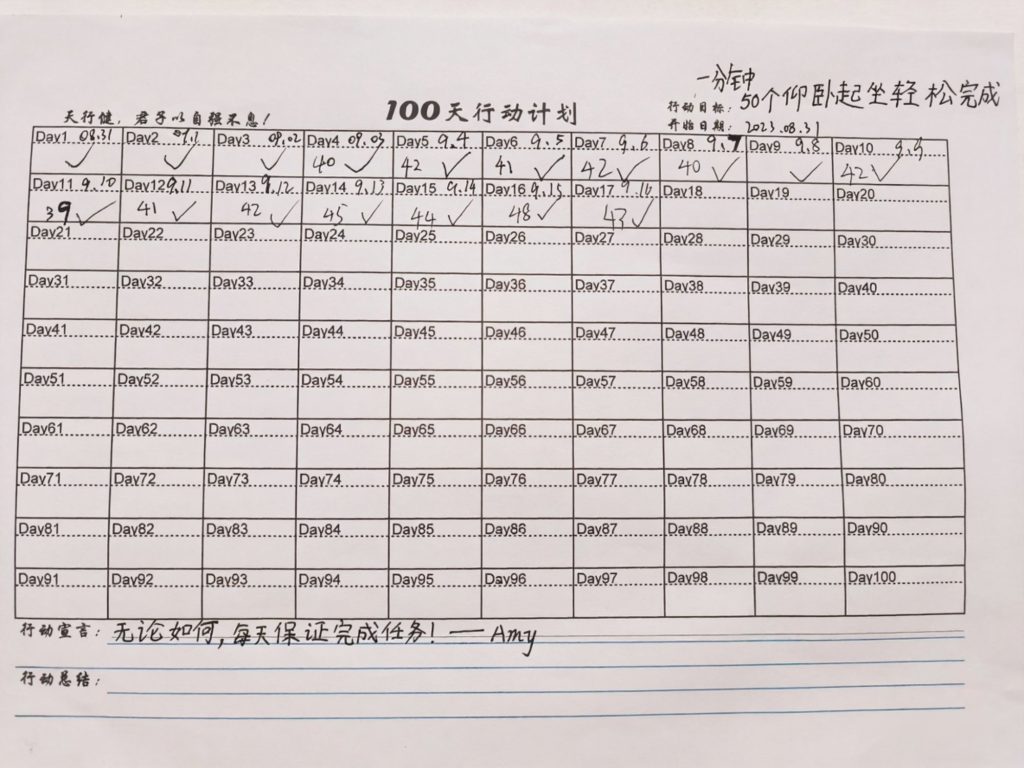 一分钟
天行健，君子以自强不息！ 100天行动计划 行动目标：50个仰卧起坐轻松完成
开始日期：2023.08.31
Day1 08.31 Day2 09.1 Day3 09.02 Day4 09.03 Day5 9.4 Day6 9.5 Day7 9.6 Day8 9.7 Day9 9.8 Day10 9.9
✓ ✓ ✓ 40 ✓ 42 ✓ 41 ✓ 42 ✓ 40 ✓ ✓ 42 ✓
Day11 9.10 Day12 9.11 Day13 9.12 Day14 9.13 Day15 9.14 Day16 9.15 Day17 9.16 Day18 Day19 Day20
39 ✓ 41 ✓ 42 ✓ 45 ✓ 44 ✓ 48 ✓ 43 ✓
Day21 Day22 Day23 Day24 Day25 Day26 Day27 Day28 Day29 Day30
Day31 Day32 Day33 Day34 Day35 Day36 Day37 Day38 Day39 Day40
Day41 Day42 Day43 Day44 Day45 Day46 Day47 Day48 Day49 Day50
Day51 Day52 Day53 Day54 Day55 Day56 Day57 Day58 Day59 Day60
Day61 Day62 Day63 Day64 Day65 Day66 Day67 Day68 Day69 Day70
Day71 Day72 Day73 Day74 Day75 Day76 Day77 Day78 Day79 Day80
Day81 Day82 Day83 Day84 Day85 Day86 Day87 Day88 Day89 Day90
Day91 Day92 Day93 Day94 Day95 Day96 Day97 Day98 Day99 Day100
行动宣言：无论如何，每天保证完成任务！— Amy
行动总结：